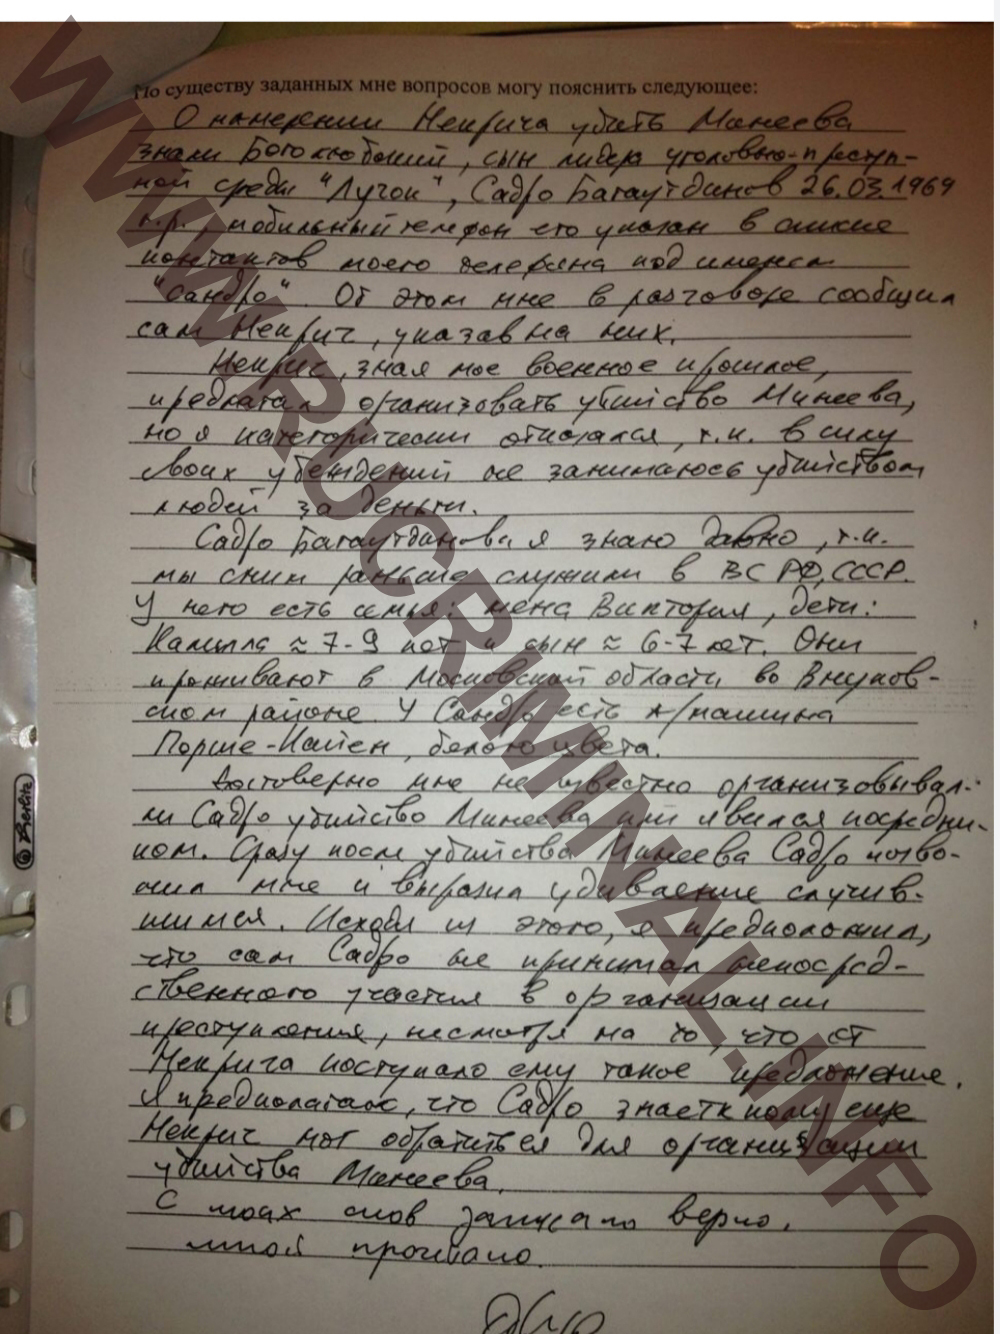 По существу заданных мне вопросов могу пояснить следующее:
О намерении Некрича убить Минеева
знали Боголюбский, сын лидера уголовно-преступ-
ной среды "Лучок", Садро Багаутдинов 26.03.1969
г.р., мобильный телефон его указан в списке
контактов моего телефона под именем
"Сандро". Об этом мне в разговоре сообщил
сам Некрич, указав на них.
Некрич, зная мое военное прошлое,
предлагал организовать убийство Минеева,
но я категорически отказался, т.к. в силу
своих убеждений не занимаюсь убийством
людей за деньги.
Садро Багаутдинова я знаю давно, т.к.
мы с ним раньше служили в ВС РФ, СССР.
У него есть семья: жена Виктория, дети:
Камилла ≈ 7-9 лет и сын ≈ 6-7 лет. Они
проживают в Московской области во Внуков-
ском районе. У Сандро есть а/машина
Порше-Кайен, белого цвета.
Достоверно мне не известно организовывал
ли Садро убийство Минеева или явился посредни-
ком. Сразу после убийства Минеева Садро позво-
нил мне и выразил удивление случив-
шимся. Исходя из этого, я предположил,
что сам Садро не принимал непосред-
ственного участия в организации
преступления, несмотря на то, что от
Некрича поступало ему такое предложение.
Я предполагаю, что Садро знает к кому еще
Некрич мог обратиться для организации
убийства Минеева.
С моих слов записано верно,
мной прочитано.
Bierlitz
WWW.RUCRIMINAL.INFO